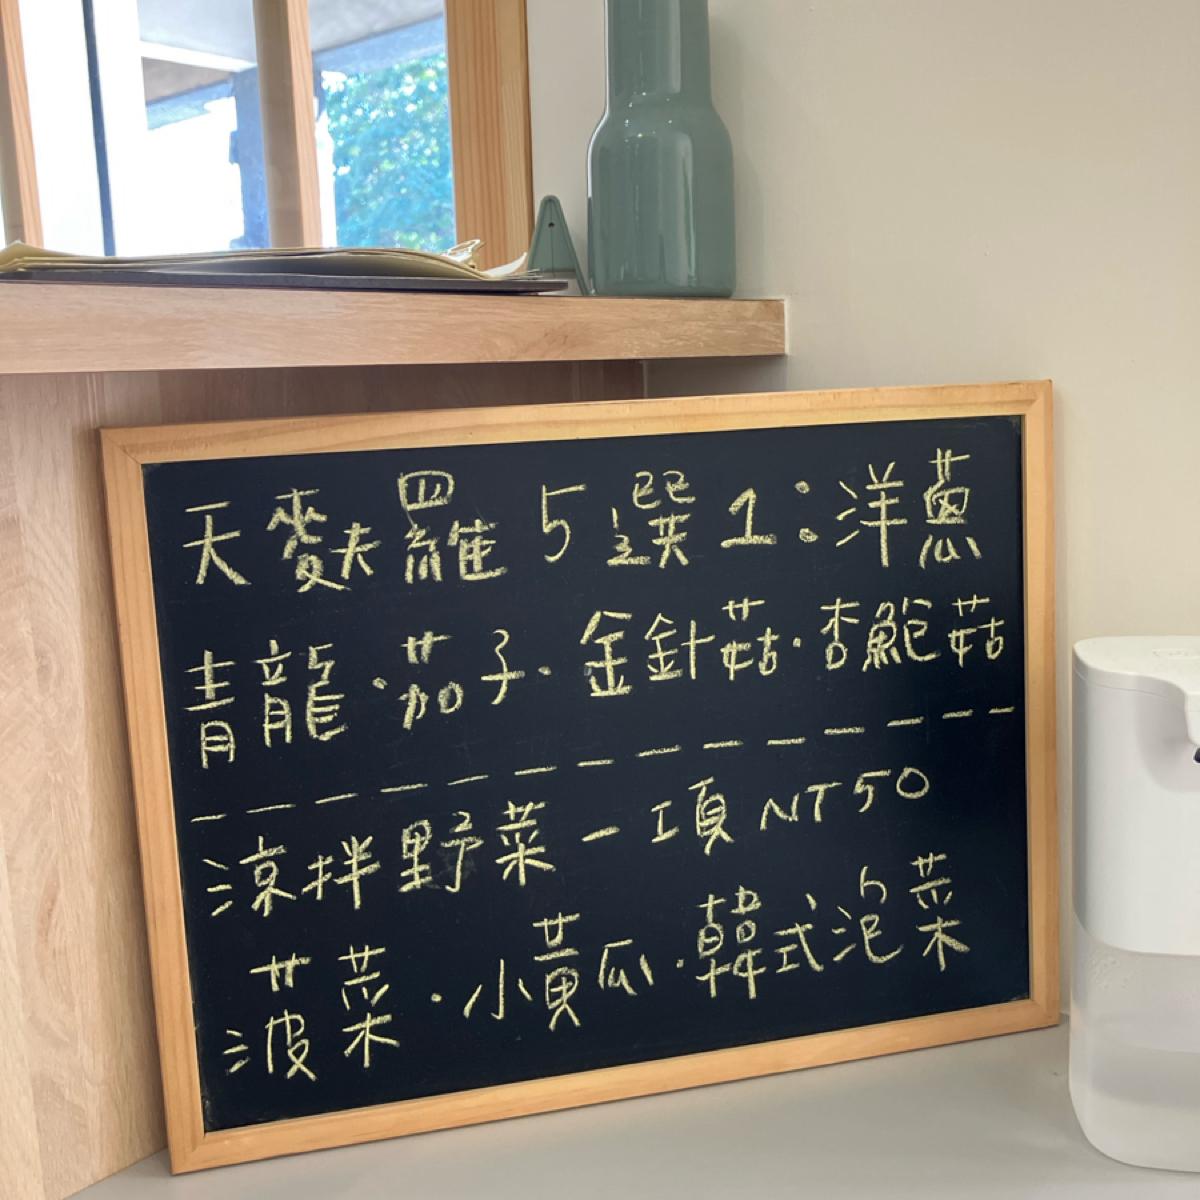 天麩羅 5選1:洋蔥
青龍·茄子·金針菇·杏鮑菇
涼拌野菜一項 NT50
菠菜·小黃瓜·韓式泡菜